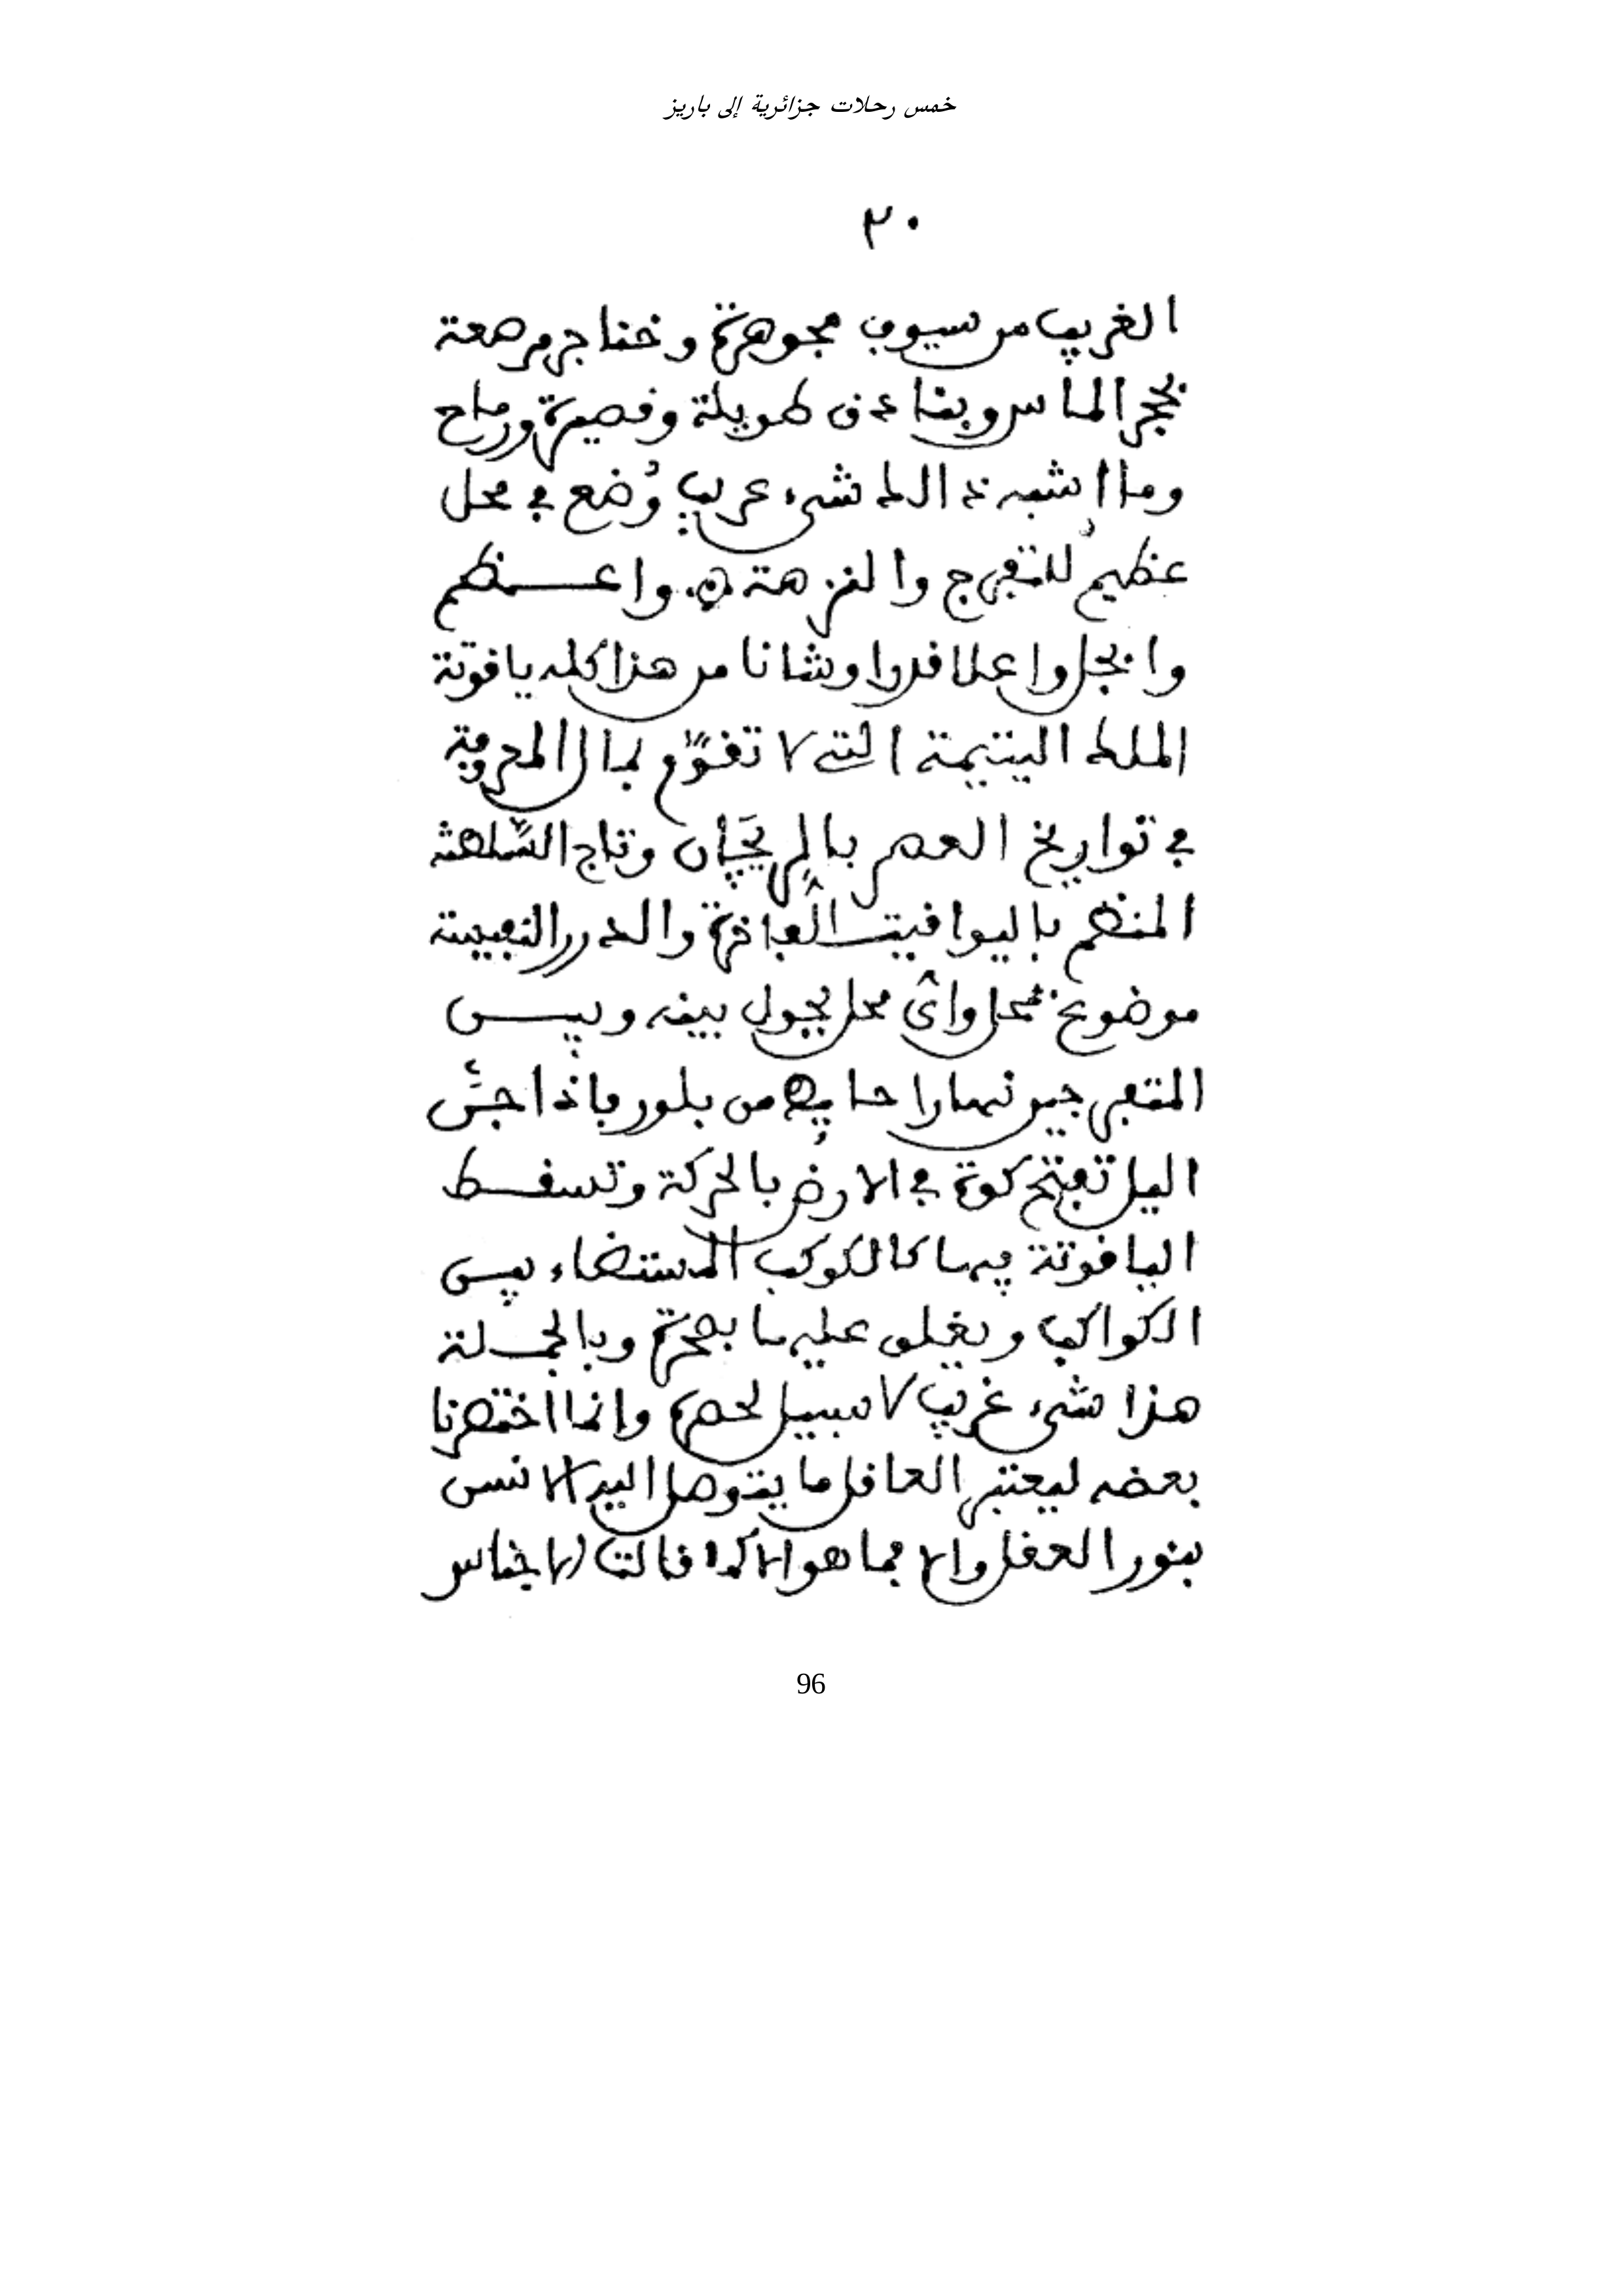 خمس رحلات جزائرية إلى باريز
٢٠
الغريب من سيوف مجوهرة وخناجر مرصعة
بحجر الماس وبنادق طويلة وقصيرة ورماح
وما اشبه ذالك شيء غريب وُضع في محل
عظيم للتفرج والنزهة واعظم
وانجل واعلا قدرا وشانا من هذا كله ياقوتة
الملك اليتيمة التي لا تقوّم بمال المعروفة
في تواريخ العصر بالريجان وتاج السلطنة
المنظم باليواقيت الفاخرة والدرر النفيسة
موضوع بمحل واي محل يحول بينه وبيــن
المتفرجين نهارا حايط من بلور فاذا جنّ
اليل تفتح كوة في الارض بالحركة وتسقـط
الياقوتة فيها كالكوكب المستضاء بين
الكواكب ويغلق عليها بصخرة وبالجملة
هذا شيء غريب لا سبيل لحصره وانما اختصرنا
بعضه ليعتبر العاقل ما يتوصل اليه الانسن
بنور العقل والا فما هو الا كما قالت الاجناس
96